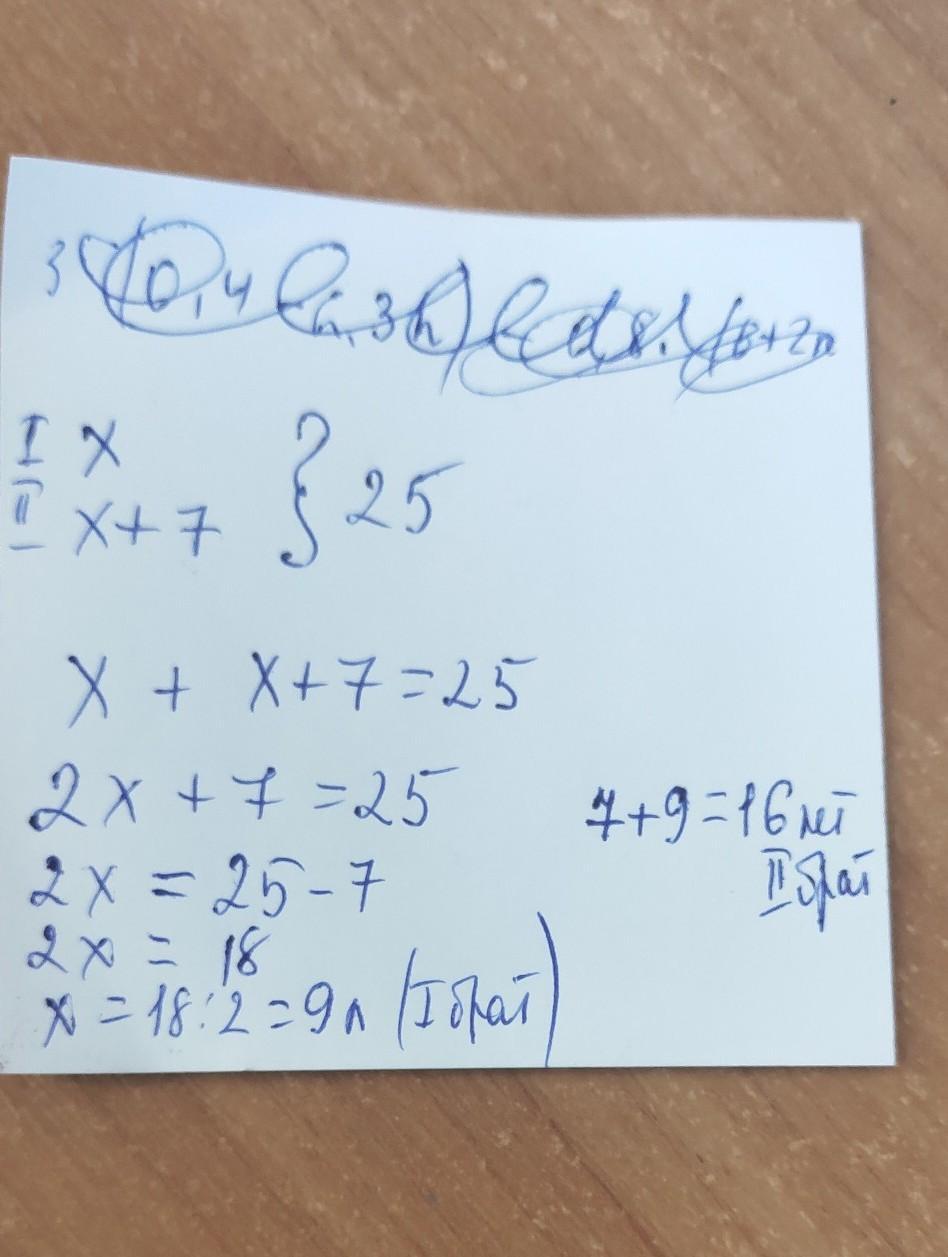 I x } 25
II x+7
x + x+7=25
2x +7 =25
2x = 25-7
2x = 18
x =18:2=9л (I брат)
7+9=16 лет
II брат